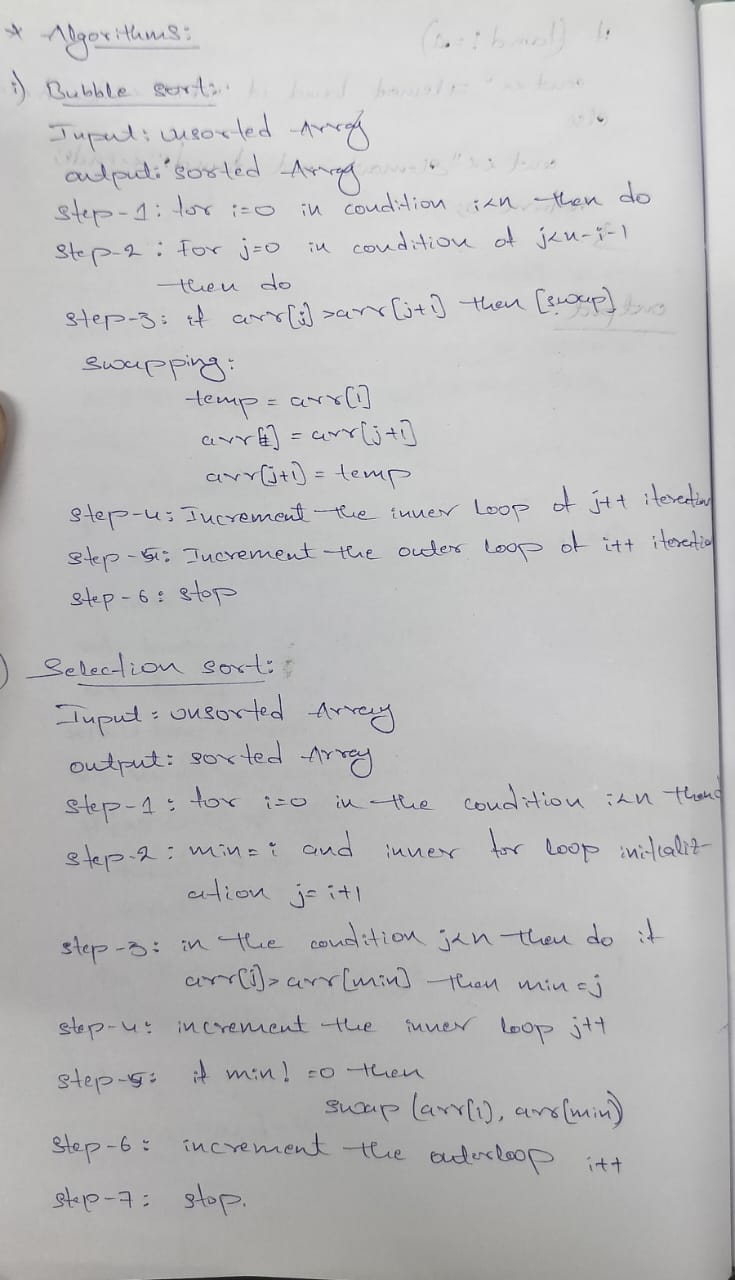 * Algorithms:
i) Bubble sort:
Input: unsorted Array
output: sorted Array
Step-1: for i=0 in condition i<n then do
Step-2: for j=0 in condition of j<n-i-1
then do
Step-3: if arr[j] >arr[j+1] then [swap]
Swapping:
temp = arr[i]
arr[j] = arr[j+1]
arr[j+1] = temp
Step-4: Increment the inner loop of j++ iteration
Step-5: Increment the outer loop of i++ iteratio
Step-6: stop
) Selection sort:
Input: unsorted Array
output: sorted Array
Step-1: for i=0 in the condition i<n then d
Step-2: min=i and inner for loop initializ-
ation j=i+1
Step-3: in the condition j<n then do if
arr[j]>arr[min] then min=j
Step-4: increment the inner loop j++
Step-5: if min! =0 then
swap (arr[i], arr[min])
Step-6: increment the outerloop i++
Step-7: stop.